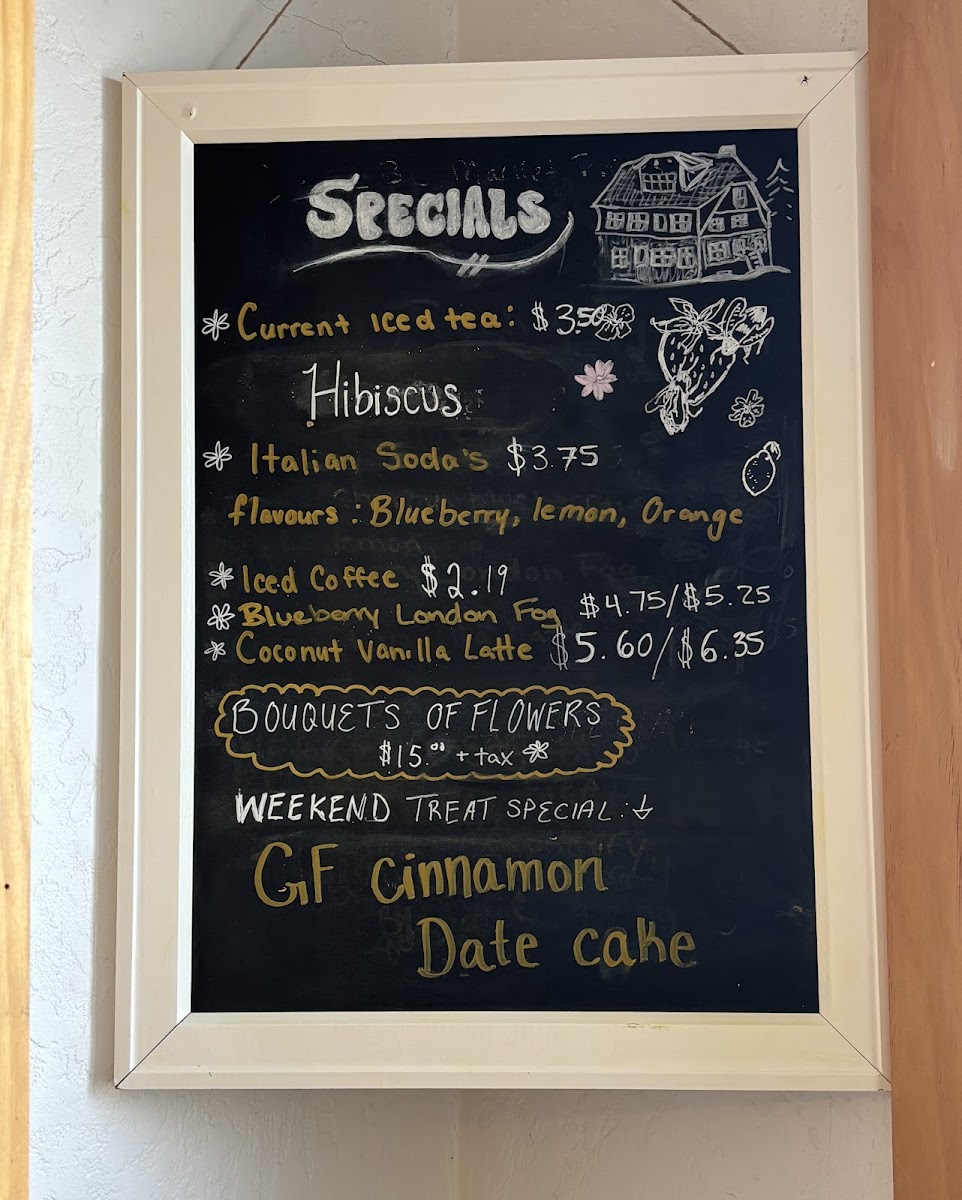 SPECIALS
Current Iced tea: $3.50
Hibiscus
Italian Soda's $3.75
flavours: Blueberry, lemon, Orange
Iced Coffee $2.19
Blueberry London Fog $4.75/$5.25
Coconut Vanilla Latte $5.60/$6.35
BOUQUETS OF FLOWERS
$15.00 + tax
WEEKEND TREAT SPECIAL:
GF cinnamon
Date cake